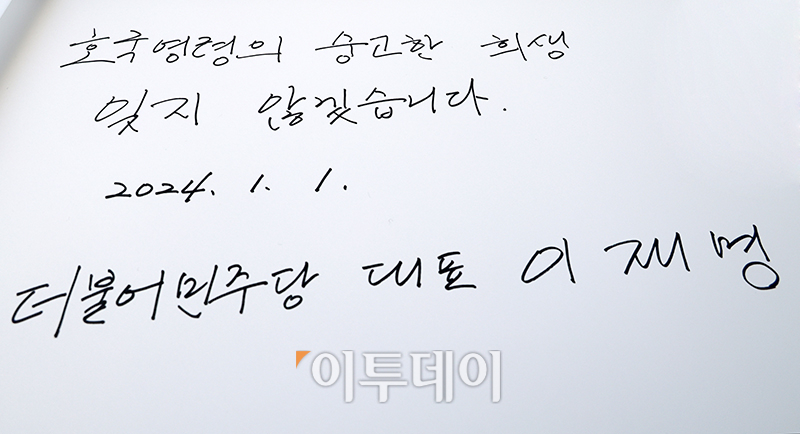 호국영령의 숭고한 희생
잊지 않겠습니다.
2024. 1. 1.
더불어민주당 대표 이재명
이투데이